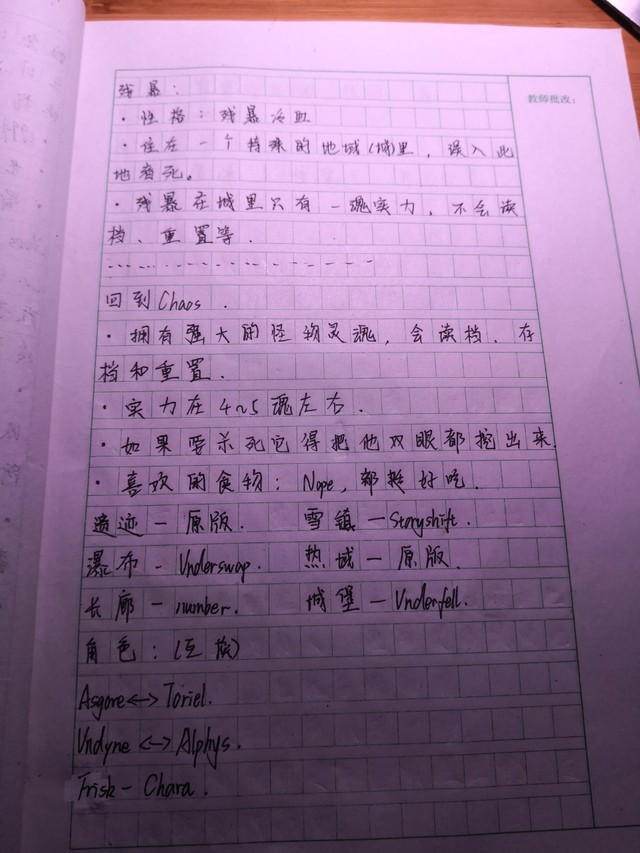 教师批改：
残暴：
·性格：残暴冷血
·住在一个特殊的地域(城)里，误入此
地者死。
·残暴在城里只有一魂实力，不会读
档、重置等.
回到Chaos.
·拥有强大的怪物灵魂，会读档、存
档和重置.
·实力在4~5魂左右.
·如果要杀死它得把他双眼都挖出来.
·喜欢的食物：Nope,都挺好吃.
遗迹—原版. 雪镇—Storyshift.
瀑布-Underswap. 热域—原版.
长廊-number. 城堡—Underfell.
角色：(互换)
Asgore<->Toriel.
Undyne<->Alphys.
Frisk-Chara.